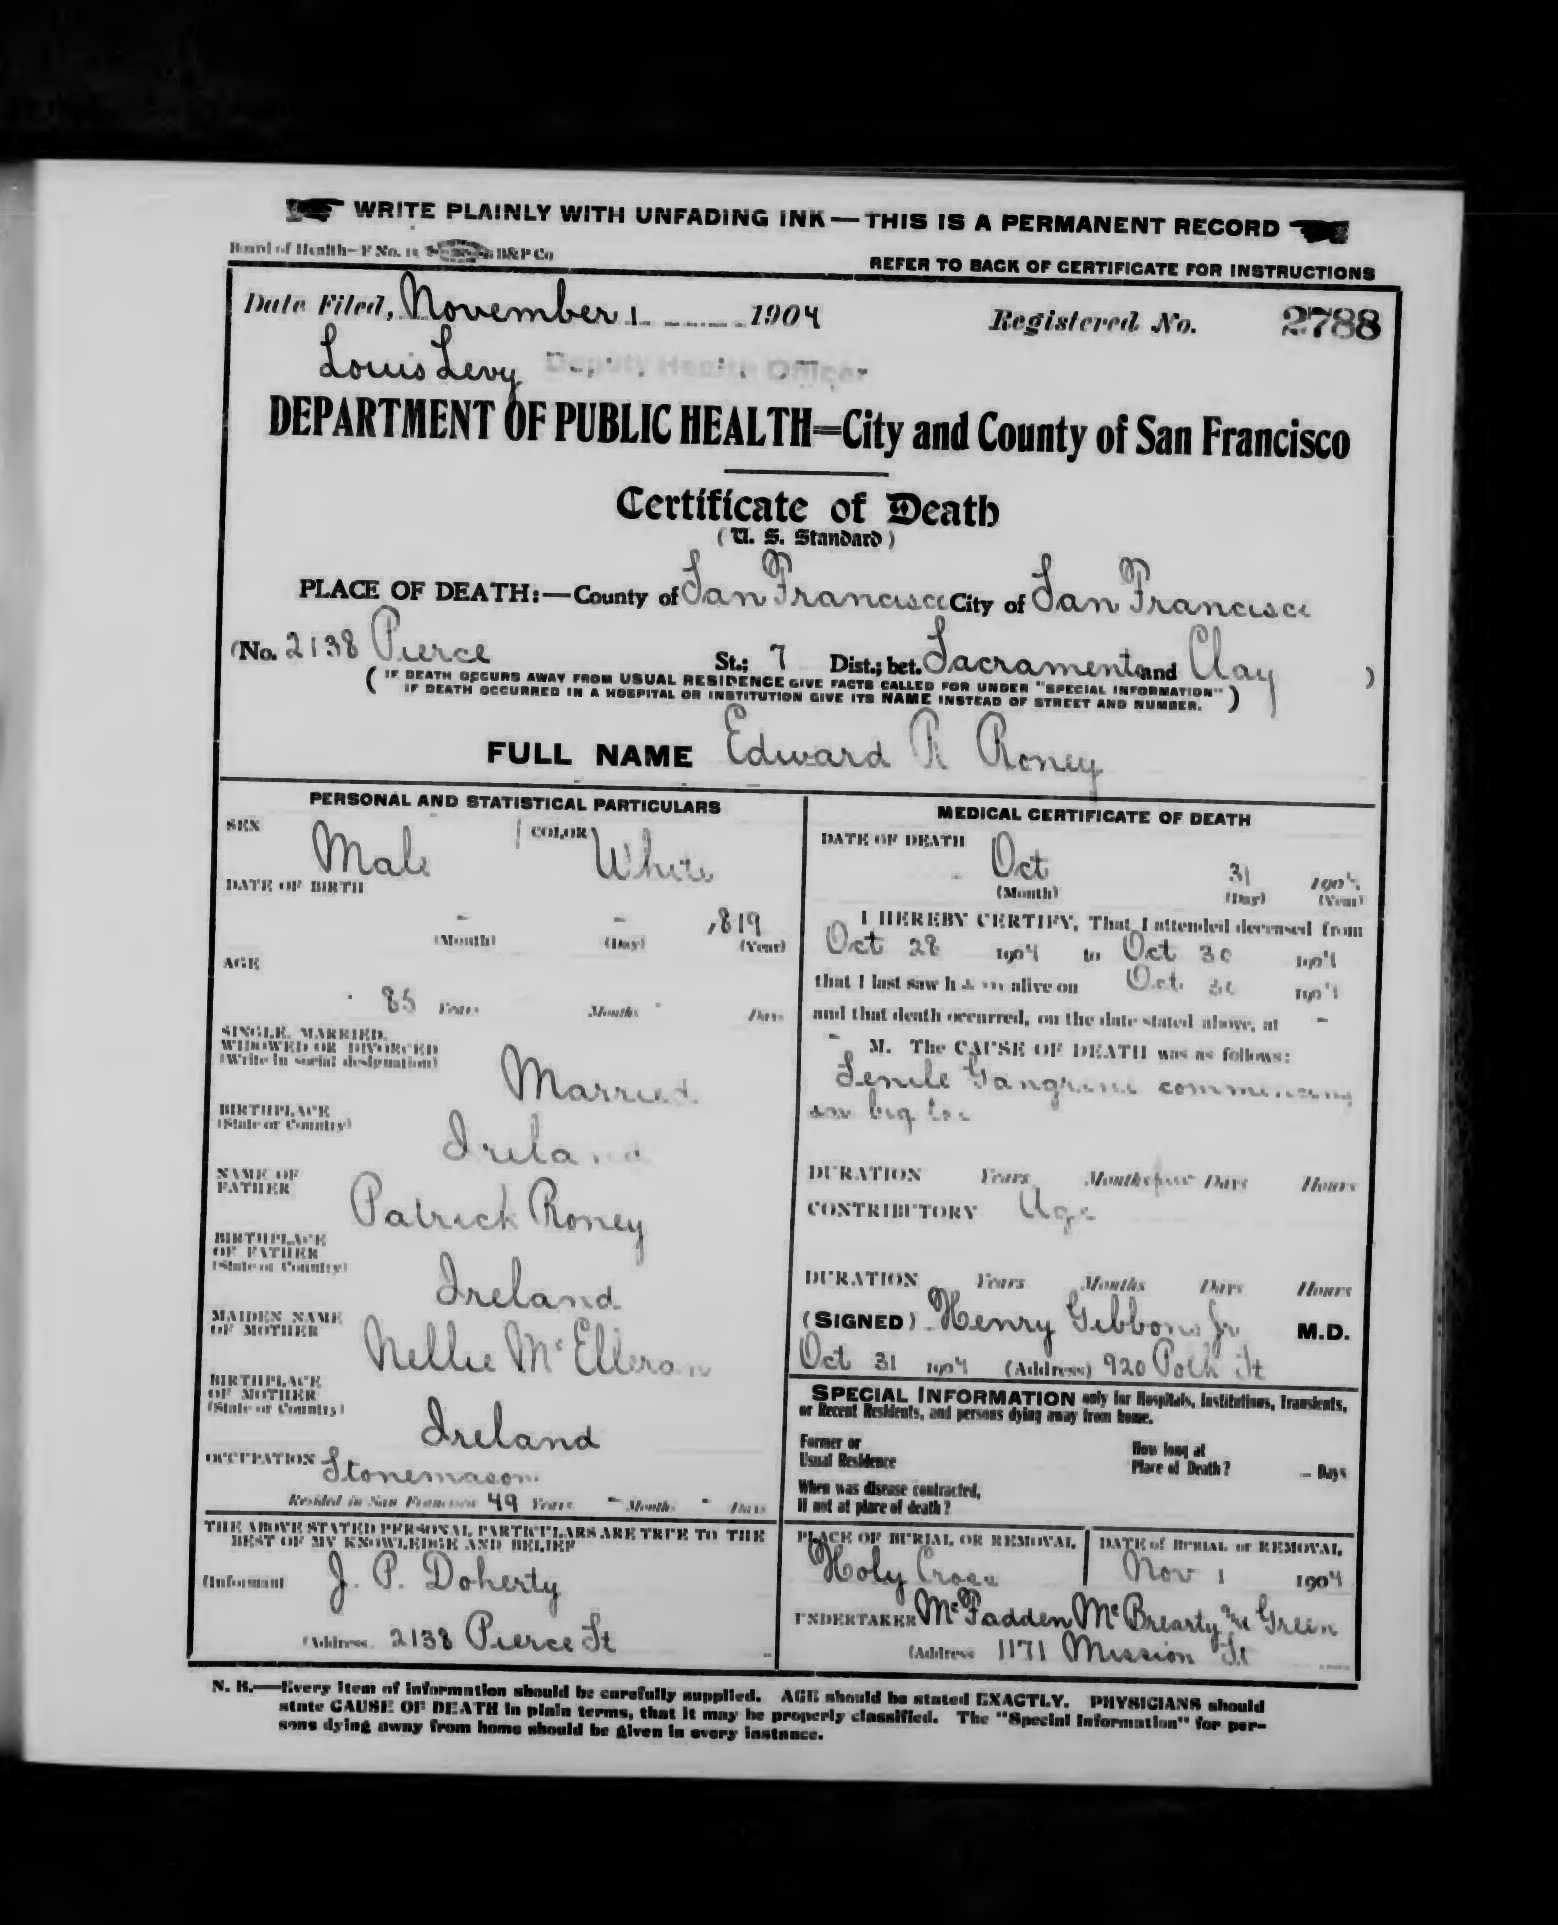 WRITE PLAINLY WITH UNFADING INK—THIS IS A PERMANENT RECORD
Board of Health—F No. 15 B&P Co
REFER TO BACK OF CERTIFICATE FOR INSTRUCTIONS
Date Filed, November 1 1904 Registered No. 2788
Louis Levy Deputy Health Officer
DEPARTMENT OF PUBLIC HEALTH=City and County of San Francisco
Certificate of Death
(U. S. Standard)
PLACE OF DEATH:—County of San Francisco City of San Francisco
(No. 2138 Pierce St.; 7 Dist.; bet. Sacramento and Clay )
(IF DEATH OCCURS AWAY FROM USUAL RESIDENCE GIVE FACTS CALLED FOR UNDER "SPECIAL INFORMATION"
IF DEATH OCCURRED IN A HOSPITAL OR INSTITUTION GIVE ITS NAME INSTEAD OF STREET AND NUMBER.)
FULL NAME Edward R Roney
PERSONAL AND STATISTICAL PARTICULARS
SEX Male COLOR White
DATE OF BIRTH
- - 1819
(Month) (Day) (Year)
AGE
85 Years Months Days
SINGLE, MARRIED,
WIDOWED OR DIVORCED
(Write in social designation)
Married
BIRTHPLACE
(State or Country)
Ireland
NAME OF
FATHER
Patrick Roney
BIRTHPLACE
OF FATHER
(State or Country)
Ireland
MAIDEN NAME
OF MOTHER
Nellie McElleran
BIRTHPLACE
OF MOTHER
(State or Country)
Ireland
OCCUPATION Stonemason
Resided in San Francisco 49 Years - Months - Days
THE ABOVE STATED PERSONAL PARTICULARS ARE TRUE TO THE
BEST OF MY KNOWLEDGE AND BELIEF
(Informant J. P. Doherty
(Address 2138 Pierce St
MEDICAL CERTIFICATE OF DEATH
DATE OF DEATH
Oct 31 1904
(Month) (Day) (Year)
I HEREBY CERTIFY, That I attended deceased from
Oct 28 1904 to Oct 30 1904
that I last saw him alive on Oct 30 1904
and that death occurred, on the date stated above, at -
- M. The CAUSE OF DEATH was as follows:
Senile Gangrene commencing
in big toe
DURATION Years Months four Days Hours
CONTRIBUTORY Age
DURATION Years Months Days Hours
(SIGNED) Henry Gibbons Jr M.D.
Oct 31 1904 (Address) 920 Polk St
SPECIAL INFORMATION only for Hospitals, Institutions, Transients,
or Recent Residents, and persons dying away from home.
Former or
Usual Residence
How long at
Place of Death? - Days
When was disease contracted,
If not at place of death?
PLACE OF BURIAL OR REMOVAL
Holy Cross
DATE of BURIAL or REMOVAL
Nov 1 1904
UNDERTAKER McFadden McBrearty & Green
(Address 1171 Mission St
N. B.—Every item of information should be carefully supplied. AGE should be stated EXACTLY. PHYSICIANS should
state CAUSE OF DEATH in plain terms, that it may be properly classified. The "Special Information" for per-
sons dying away from home should be given in every instance.